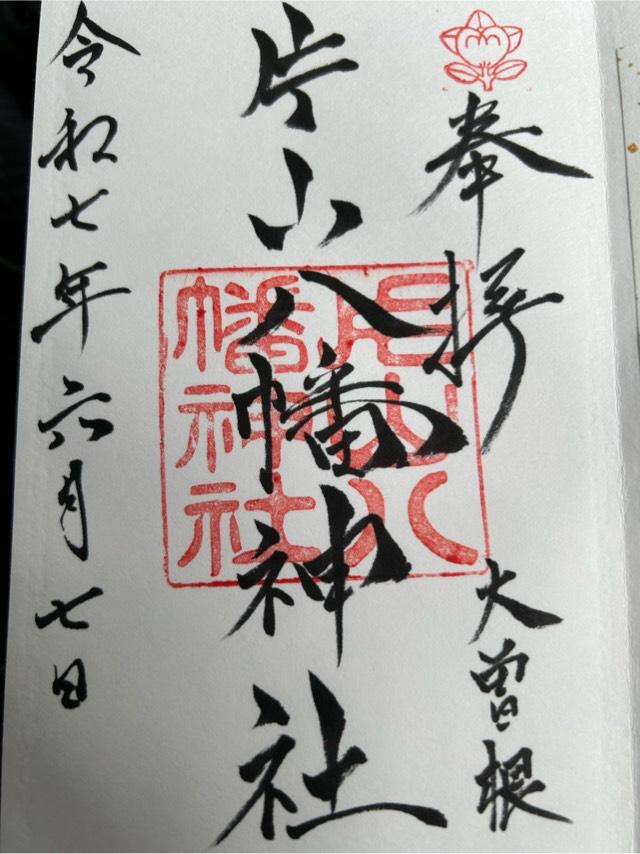 奉拝
大曽根
片山八幡神社
片山八
幡神社
令和七年六月七日